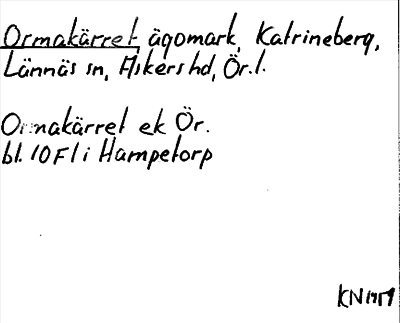 Ormakärret, ägomark, Katrineberg,
Lännäs sn, Askers hd, Ör. l.
Ormakärret ek Ör.
bl. 10 F1 i Hampetorp